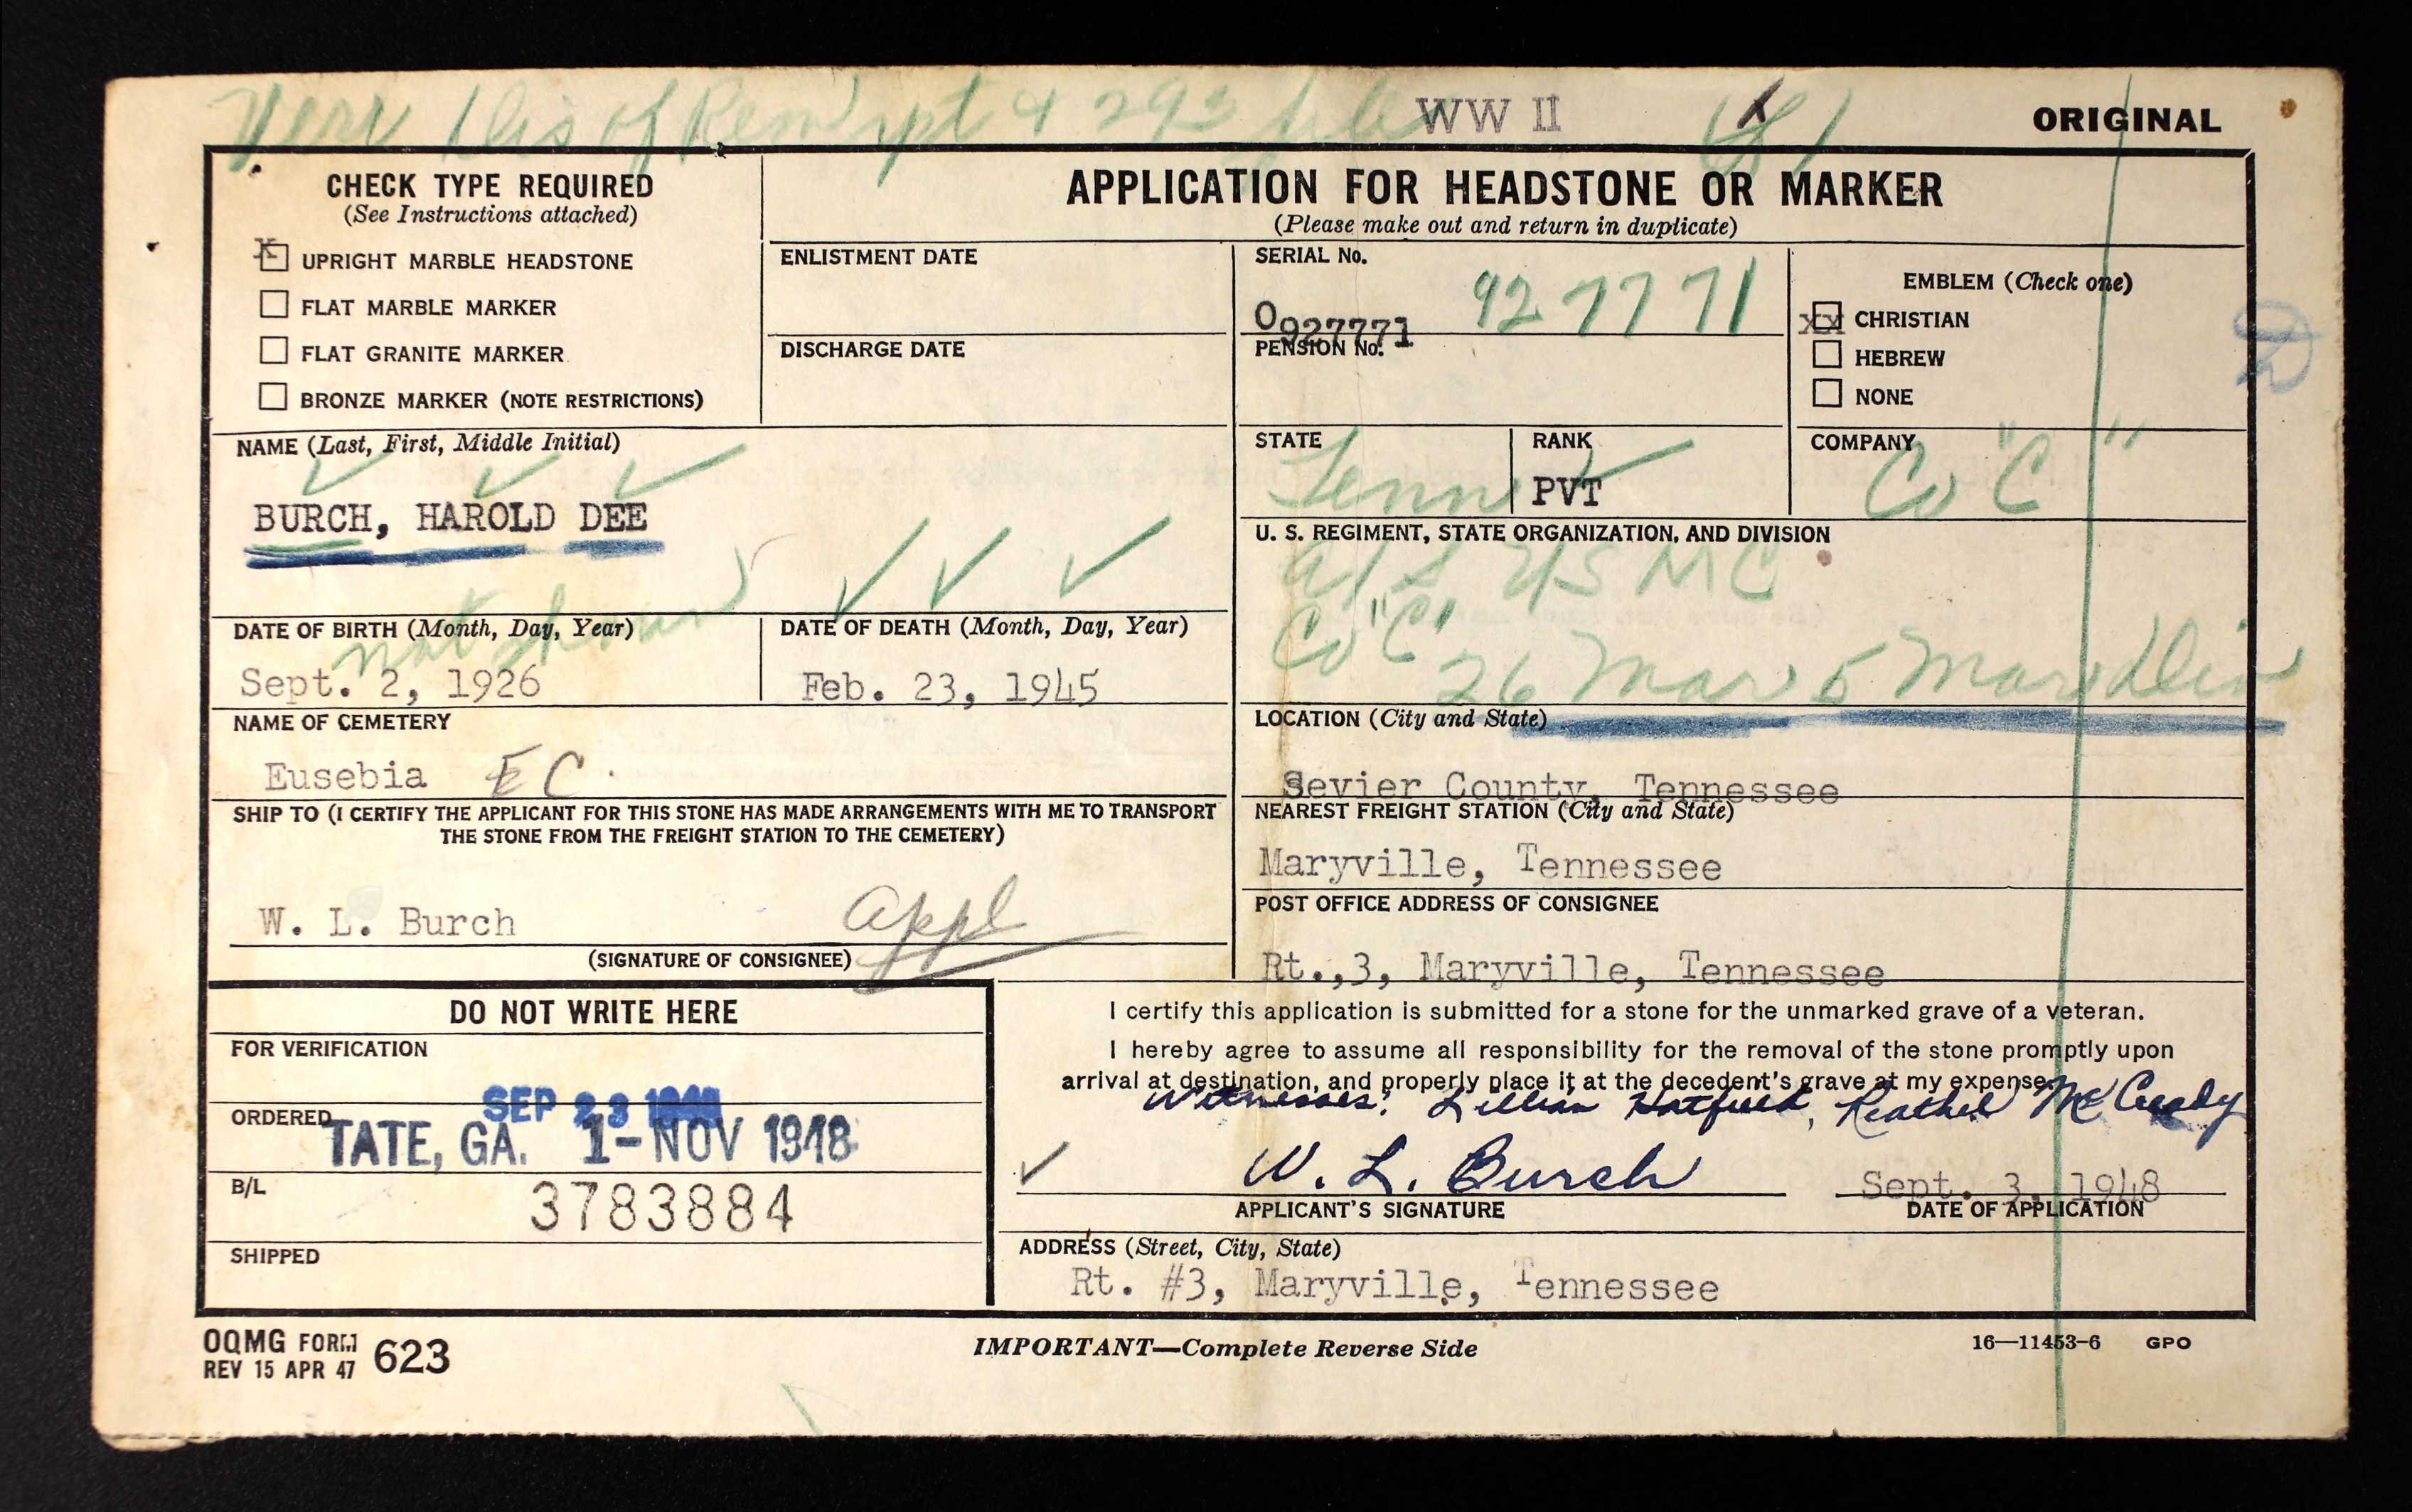 Dis of Rem rpt & 293 file
WW II
ORIGINAL
CHECK TYPE REQUIRED
(See Instructions attached)
X UPRIGHT MARBLE HEADSTONE
FLAT MARBLE MARKER
FLAT GRANITE MARKER
BRONZE MARKER (NOTE RESTRICTIONS)
APPLICATION FOR HEADSTONE OR MARKER
(Please make out and return in duplicate)
ENLISTMENT DATE
DISCHARGE DATE
SERIAL No.
O927771 927771
PENSION No.
EMBLEM (Check one)
xx CHRISTIAN
HEBREW
NONE
NAME (Last, First, Middle Initial)
BURCH, HAROLD DEE
STATE
Tenn
RANK
PVT
COMPANY
Co "C"
U. S. REGIMENT, STATE ORGANIZATION, AND DIVISION
USMC
Co "C"
26 Mar 5 Mar Div
DATE OF BIRTH (Month, Day, Year)
not shown
Sept. 2, 1926
DATE OF DEATH (Month, Day, Year)
Feb. 23, 1945
NAME OF CEMETERY
Eusebia EC
LOCATION (City and State)
Sevier County, Tennessee
SHIP TO (I CERTIFY THE APPLICANT FOR THIS STONE HAS MADE ARRANGEMENTS WITH ME TO TRANSPORT
THE STONE FROM THE FREIGHT STATION TO THE CEMETERY)
W. L. Burch appl
(SIGNATURE OF CONSIGNEE)
NEAREST FREIGHT STATION (City and State)
Maryville, Tennessee
POST OFFICE ADDRESS OF CONSIGNEE
Rt.,3, Maryville, Tennessee
DO NOT WRITE HERE
FOR VERIFICATION
SEP 23 1948
ORDERED
TATE, GA. 1-NOV 1948
B/L
3783884
SHIPPED
I certify this application is submitted for a stone for the unmarked grave of a veteran.
I hereby agree to assume all responsibility for the removal of the stone promptly upon
arrival at destination, and properly place it at the decedent's grave at my expense.
Witnesses: Lillian Hatfield, McCready
W. L. Burch
APPLICANT'S SIGNATURE
Sept. 3, 1948
DATE OF APPLICATION
ADDRESS (Street, City, State)
Rt. #3, Maryville, Tennessee
OQMG FORM
REV 15 APR 47 623
IMPORTANT—Complete Reverse Side
16—11453-6 GPO